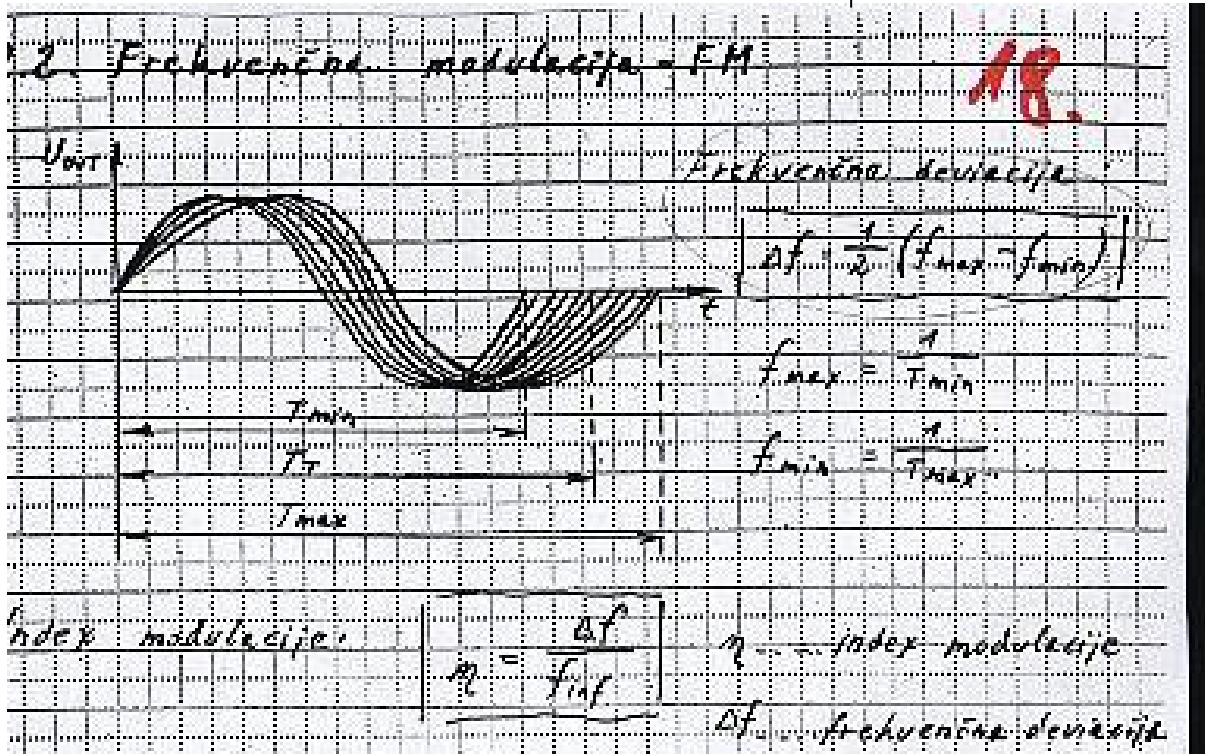 2. Frekvenčna modulacija - FM
18.
UOUT
Frekvenčna deviacija
Δf = 1/2 (fmax - fmin)
t
fmax = 1/Tmin
Tmin
fmin = 1/Tmax
TT
Tmax
Index modulacije:
η = Δf/finf
η .... index modulacije
Δf .... frekvenčna deviacija